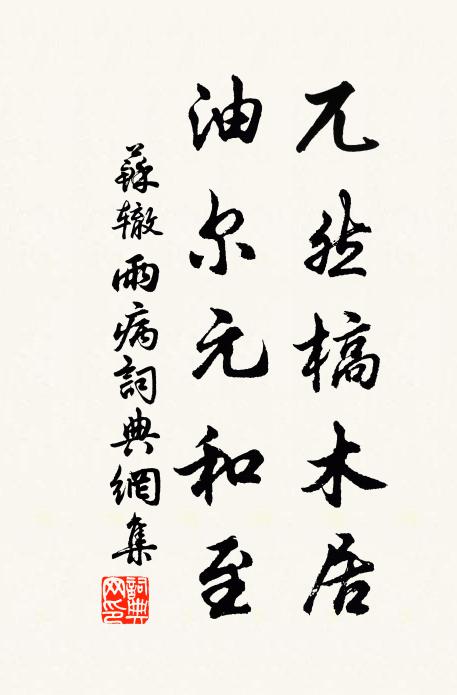 兀然槁木居
油尔元和至
蘇辙雨病詞典網集
詞典网印